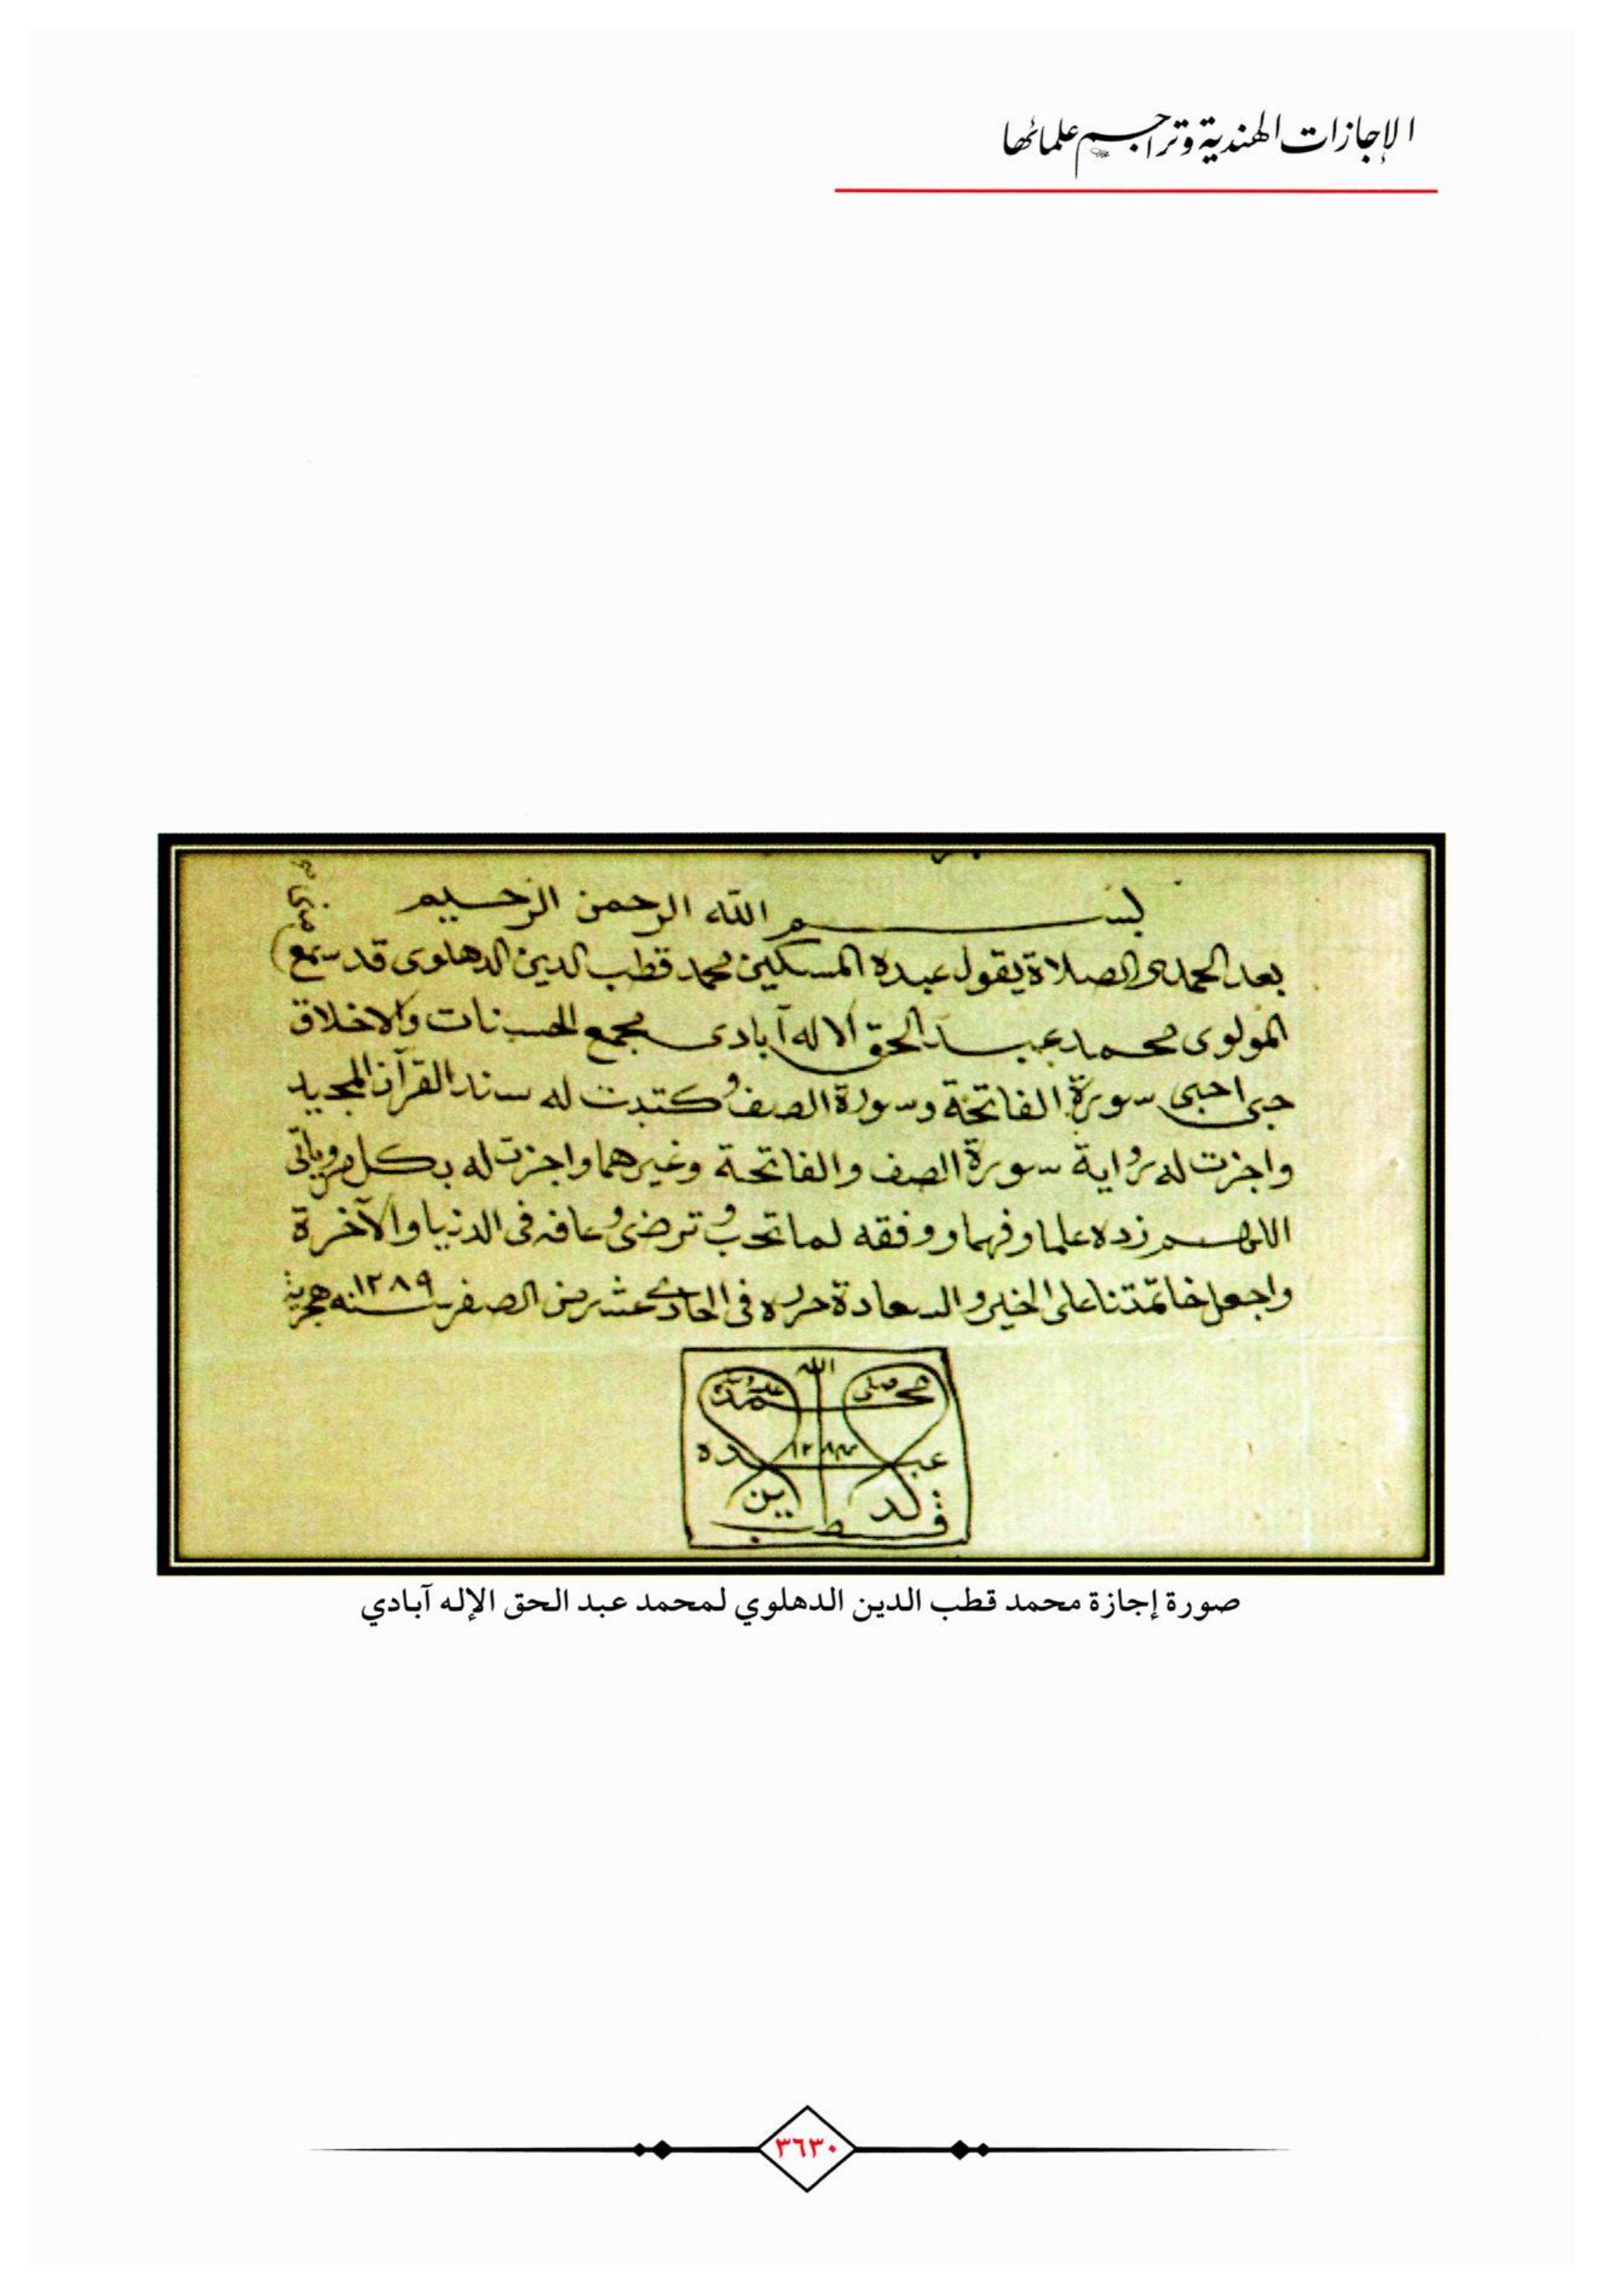 الإجازات الهندية وتراجم علمائها
بســـم الله الرحمن الرحيم
بعد الحمد والصلاة يقول عبده المسكين محمد قطب الدين الدهلوى قد سمع
منى
المولوى محمد عبد الحق الاله آبادى مجمع الحسنات والاخلاق
حبى احبى سورة الفاتحة وسورة الصف وكتبت له سند القرآن المجيد
واجزت له رواية سورة الصف والفاتحة وغيرهما واجزت له بكل مروياتى
اللهم زده علما وفهما ووفقه لما تحب وترضى وعافه فى الدنيا والآخرة
واجعل خاتمتنا على الخير والسعادة حرره فى الحادى عشر من الصفر سنه ١٢٨٩ هجرية
الله
محمد صلى
عبده
قطب الدين
صورة إجازة محمد قطب الدين الدهلوي لمحمد عبد الحق الإله آبادي
٣٦٣٠